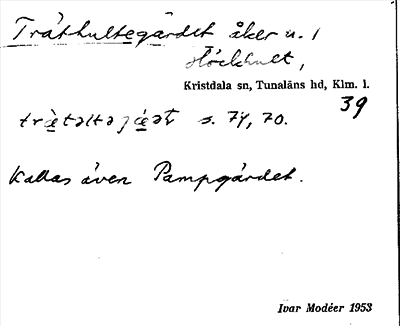 Tråthultegärdet åker u. 1
Stöckhult,
Kristdala sn, Tunaläns hd, Klm. l.
39
s. 74, 70.
Kallas även Pampgärdet.
Ivar Modéer 1953